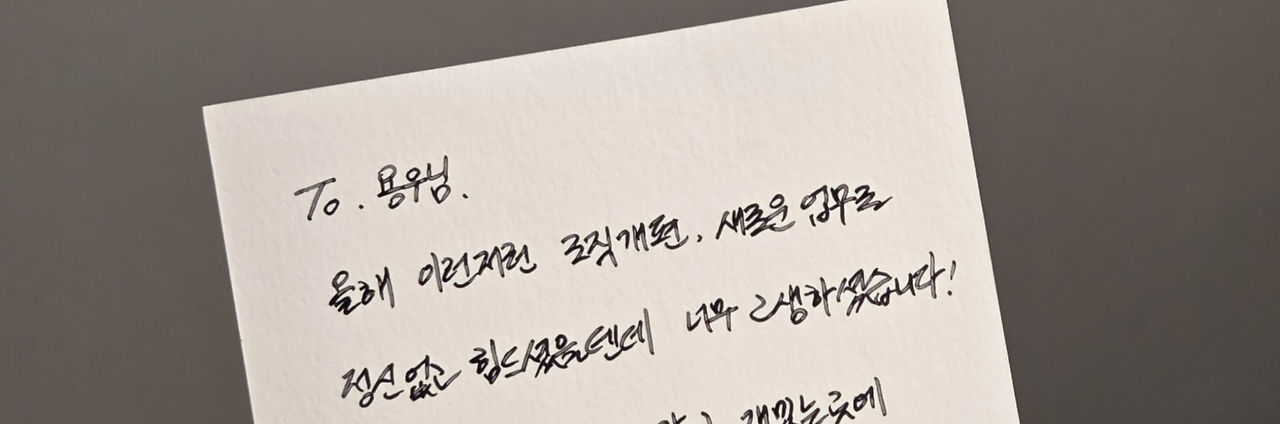 To. 용우님.
올해 이런저런 조직개편, 새로운 업무로
정신없고 힘드셨을텐데 너무 고생하셨습니다!
재밌는곳에